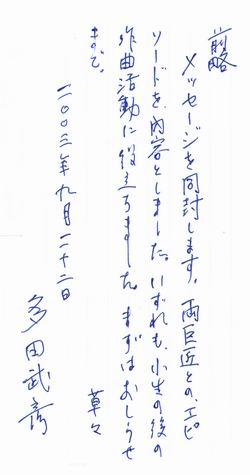 前略
メッセージを同封します。両巨匠との、エピ
ソードを、内容としました。いずれも、小生の後の
作曲活動に役立ちました。まずはおしらせ
まで。
草々
二〇〇三年九月二十二日
多田武彦